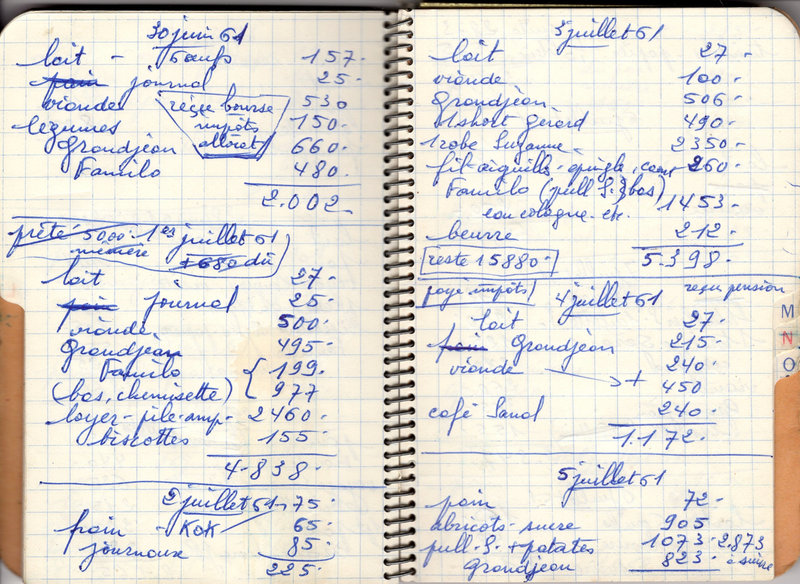 30 juin 61
lait - 6 œufs 157.
pain journal 25.
viandes 530
légumes 150.
reçue bourse
impôts
Grandjean 660.
Familo 480.
2.002
prêté 5000.- 1er juillet 61
mémère + 680 dû
lait 27.
pain journal 25.
viande 500.
Grandjean 495.
Familo { 199.
(bas, chemisette) { 977
loyer - pile - amp - 2460.
biscottes 155.
4.838.
2 juillet 61
pain - KoK 75
65.
journaux 85.
225.
3 juillet 61
lait 27.
viande 100.
Grandjean 506.
1 short Gérard 490.
1 robe Suzanne 2350.
fil - aiguille - épingle, 260.
Familo (pull S. 3 bas)
eau cologne - etc. 1453.
beurre 212.
reste 15880.- 5.398.
payé impôts 4 juillet 61 reçu pension
lait 27.
pain Grandjean 215.
viande 240.
+ 450
café Sand 240.
1.172.
M
N
O
5 juillet 61
pain 72.
abricots - sucre 905
pull S. + patates 1073. 2.873
Grandjean 823. à suivre